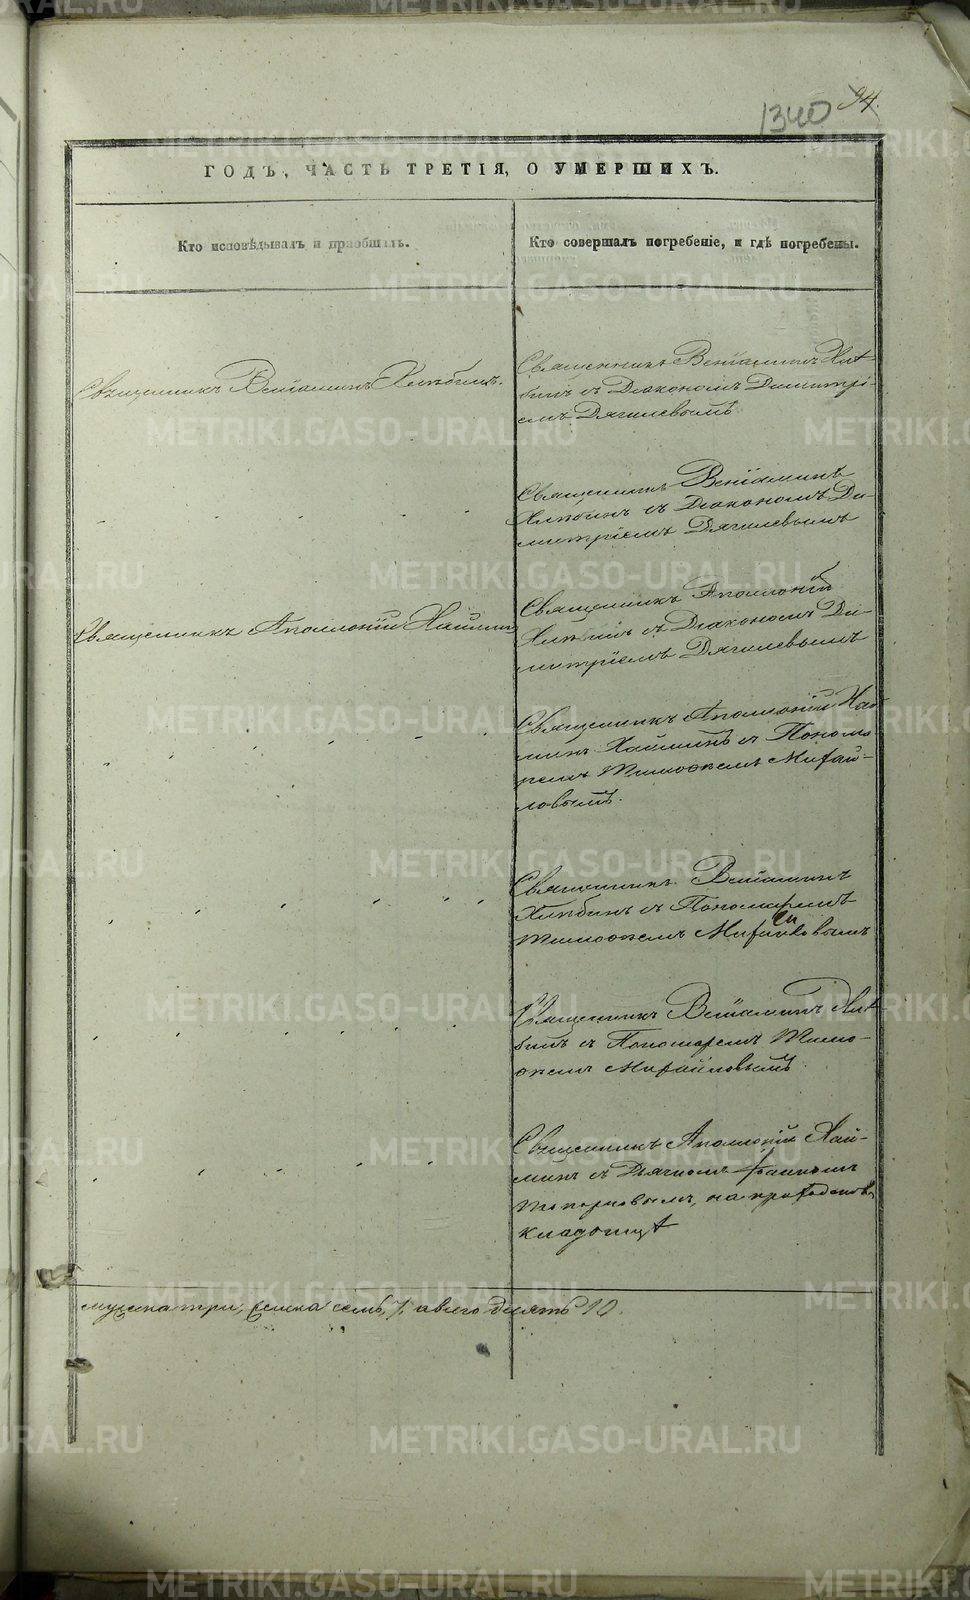 1340 94.
ГОДЪ, ЧАСТЬ ТРЕТІЯ, О УМЕРШИХЪ.
Кто исповѣдывалъ и пріобщалъ.
Кто совершалъ погребеніе, и гдѣ погребены.
Священникъ Веніаминъ Хлѣбинъ.
Священникъ Веніаминъ Хлѣ-
бинъ съ Діакономъ Димитрі-
емъ Дягилевымъ
Священникъ Веніаминъ
Хлѣбинъ съ Діакономъ Ди-
митріемъ Дягилевымъ
Священникъ Аполлоній
Священникъ Аполлоній
съ Діакономъ Ди-
митріемъ Дягилевымъ
Священникъ Аполлоній
съ Понома
ремъ Тимоѳеемъ Михай-
ловымъ.
Священникъ Веніаминъ
Хлѣбинъ съ Пономаремъ
Тимоѳеемъ Михайловымъ
Священникъ Веніаминъ Хлѣ-
бинъ съ Пономаремъ Тимо-
ѳеемъ Михайловымъ
Священникъ Аполлоній Хай-
минъ съ Дьячкомъ
Топорковымъ, на приходскомъ
кладбищѣ
мужска три, женска семь, 7. а всего десять 10.
METRIKI.GASO-URAL.RU